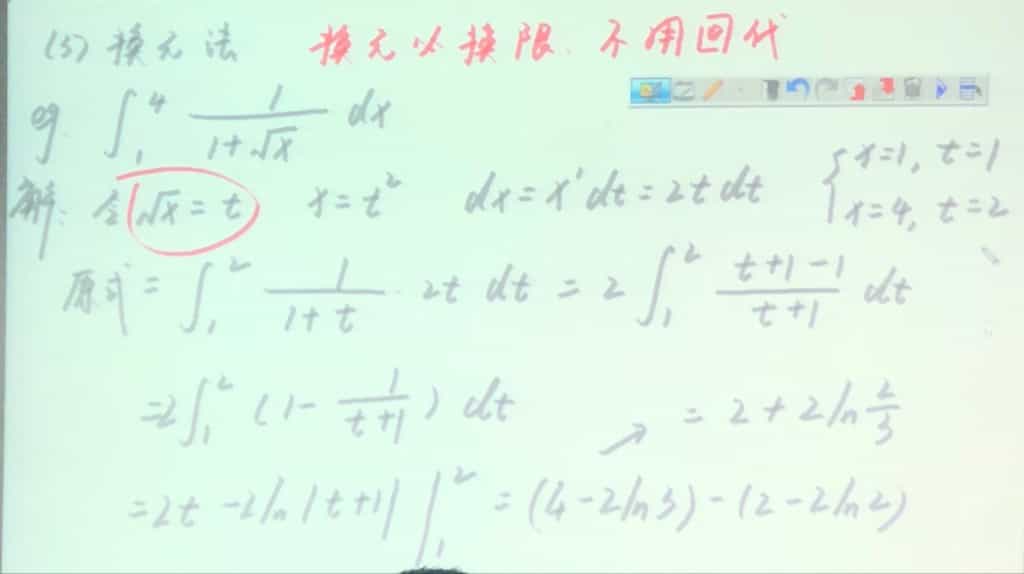 (3) 换元法 换元必换限. 不用回代
eg. ∫₁⁴ 1/(1+√x) dx
解: 令 √x = t x = t² dx = x'dt = 2t dt { x=1, t=1
x=4, t=2
原式 = ∫₁² 1/(1+t) · 2t dt = 2 ∫₁² (t+1-1)/(t+1) dt
=2∫₁² (1 - 1/(t+1)) dt = 2 + 2ln 2/3
=2t - 2ln|t+1| |₁² = (4-2ln3) - (2-2ln2)